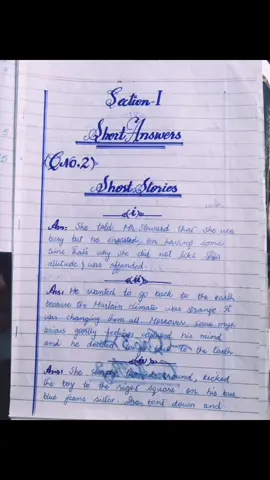 Section-I
Short Answers
(QNo.2)
Short Stories
(i)
Ans: She told Mr. Steward that she was
busy but he insisted on having some
time that's why she did not like this
attitude & was offended.
(ii)
Ans: He wanted to go back to the earth
because the Martain climate was strange. It
was changing them all. Moreover, some myst
erious ghostly feelings captured his mind
and he decided to go back to the Earth
Ans: She turned around, kicked
the boy to the right square on his blue
blue jeans sitter. She bent down and